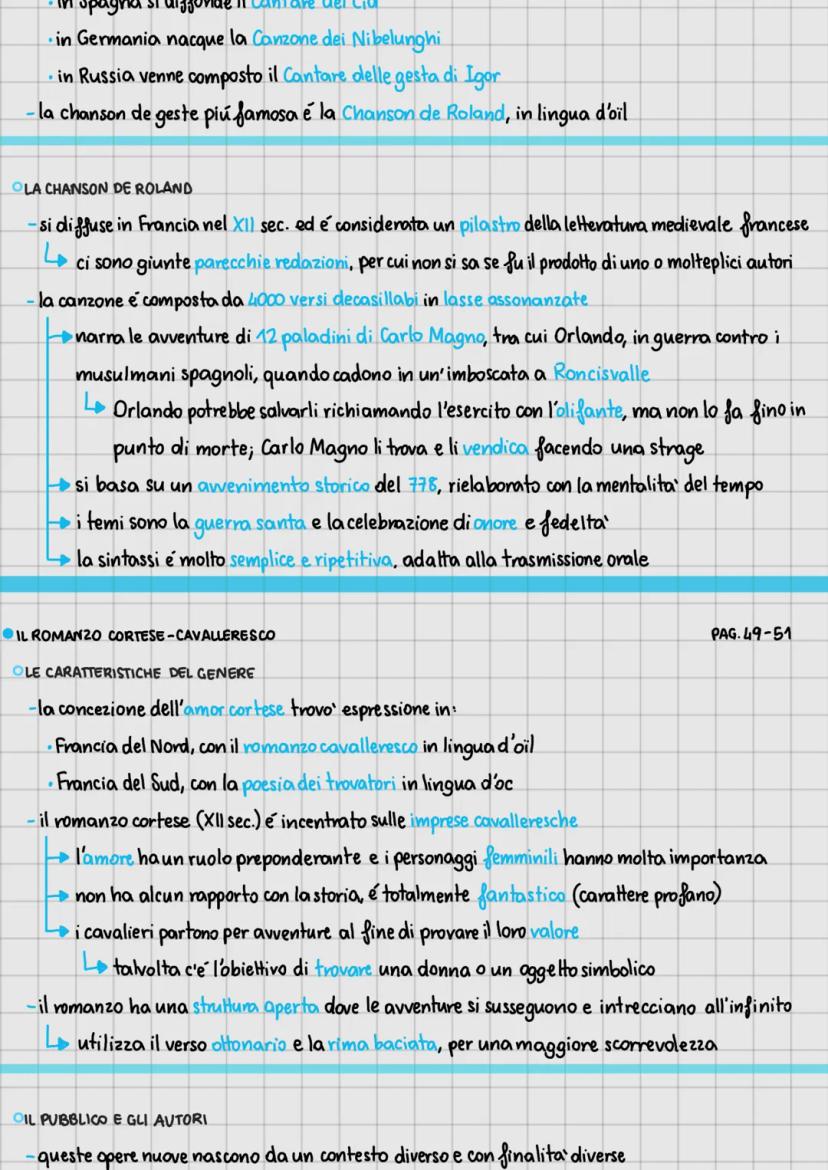 · in Spagna si diffonde il Cantare del Cid
· in Germania nacque la Canzone dei Nibelunghi
· in Russia venne composto il Cantare delle gesta di Igor
- la chanson de geste piú famosa é la Chanson de Roland, in lingua d'oïl
LA CHANSON DE ROLAND
- si diffuse in Francia nel XII sec. ed é considerata un pilastro della letteratura medievale francese
ci sono giunte parecchie redazioni, per cui non si sa se fu il prodotto di uno o molteplici autori
- la canzone é composta da 4000 versi decasillabi in lasse assonanzate
narra le avventure di 12 paladini di Carlo Magno, tra cui Orlando, in guerra contro i
musulmani spagnoli, quando cadono in un'imboscata a Roncisvalle
Orlando potrebbe salvarli richiamando l'esercito con l'olifante, ma non lo fa fino in
punto di morte; Carlo Magno li trova e li vendica facendo una strage
si basa su un avvenimento storico del 778, rielaborato con la mentalita' del tempo
i temi sono la guerra santa e la celebrazione di onore e fedelta'
la sintassi é molto semplice e ripetitiva, adatta alla trasmissione orale
IL ROMANZO CORTESE-CAVALLERESCO PAG. 49-51
LE CARATTERISTICHE DEL GENERE
- la concezione dell'amor cortese trovo' espressione in:
· Francia del Nord, con il romanzo cavalleresco in lingua d'oïl
· Francia del Sud, con la poesia dei trovatori in lingua d'oc
- il romanzo cortese (XII sec.) é incentrato sulle imprese cavalleresche
l'amore ha un ruolo preponderante e i personaggi femminili hanno molta importanza
non ha alcun rapporto con la storia, é totalmente fantastico (carattere profano)
i cavalieri partono per avventure al fine di provare il loro valore
talvolta c'é l'obiettivo di trovare una donna o un oggetto simbolico
- il romanzo ha una struttura aperta dove le avventure si susseguono e intrecciano all'infinito
utilizza il verso ottonario e la rima baciata, per una maggiore scorrevolezza
IL PUBBLICO E GLI AUTORI
- queste opere nuove nascono da un contesto diverso e con finalita' diverse